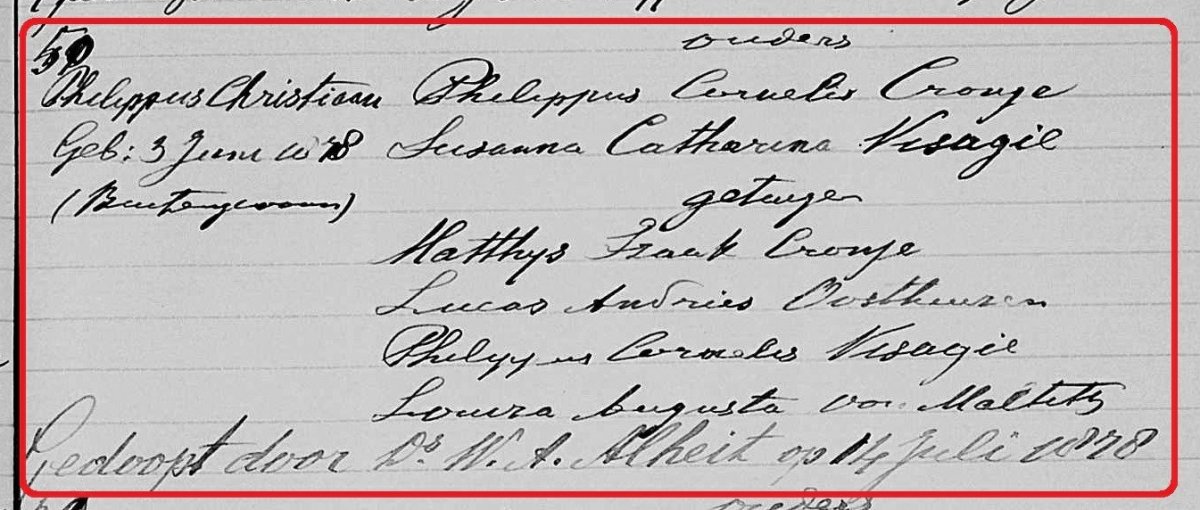 59
ouders
Philippus Christiaan Philippus Cornelis Cronje
Geb: 3 Juni 1878 Susanna Catharina Visagie
(Buitengewoon)
getuigen
Matthys Frank Cronje
Lucas Andries Oosthuizen
Philippus Cornelis Visagie
Louiza Augusta von Maltitz
Gedoopt door Ds W. A. Alheit op 14 Juli 1878
ouders